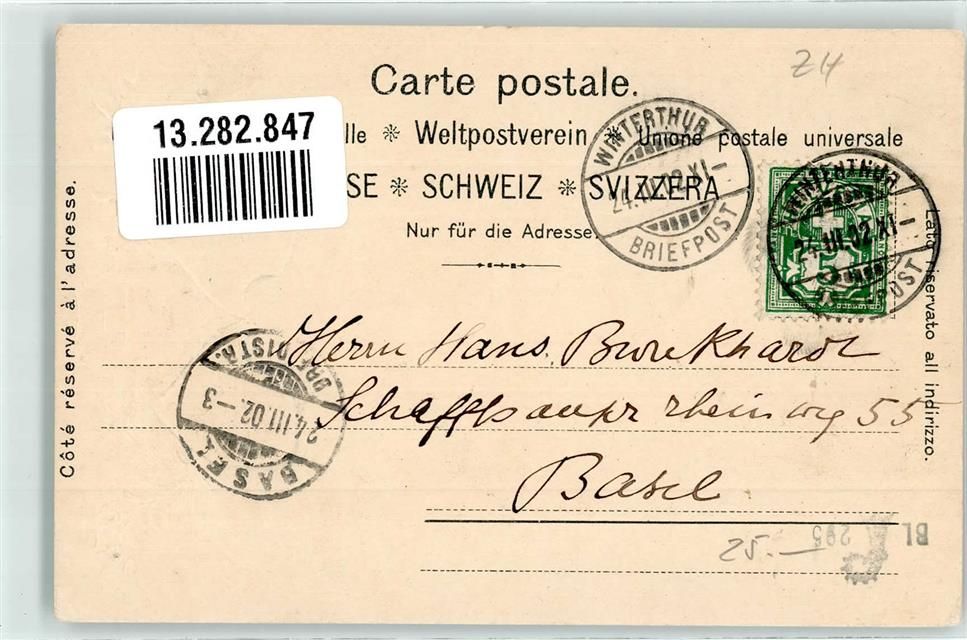 Z4
Carte postale.
13.282.847
lle ❊ Weltpostverein ❊ Unione postale universale
SE ❊ SCHWEIZ ❊ SVIZZERA
Nur für die Adresse.
WINTERTHUR
24.III.02.XI–
BRIEFPOST
WINTERTHUR
24.III.02.XI–
POST
Côté réservé à l'adresse.
Lato riservato all indirizzo.
Herrn Hans. Burckhardt
Schaffhauserrheinweg 55
Basel
BASEL
24.III.02.–3
BL 295
25.—